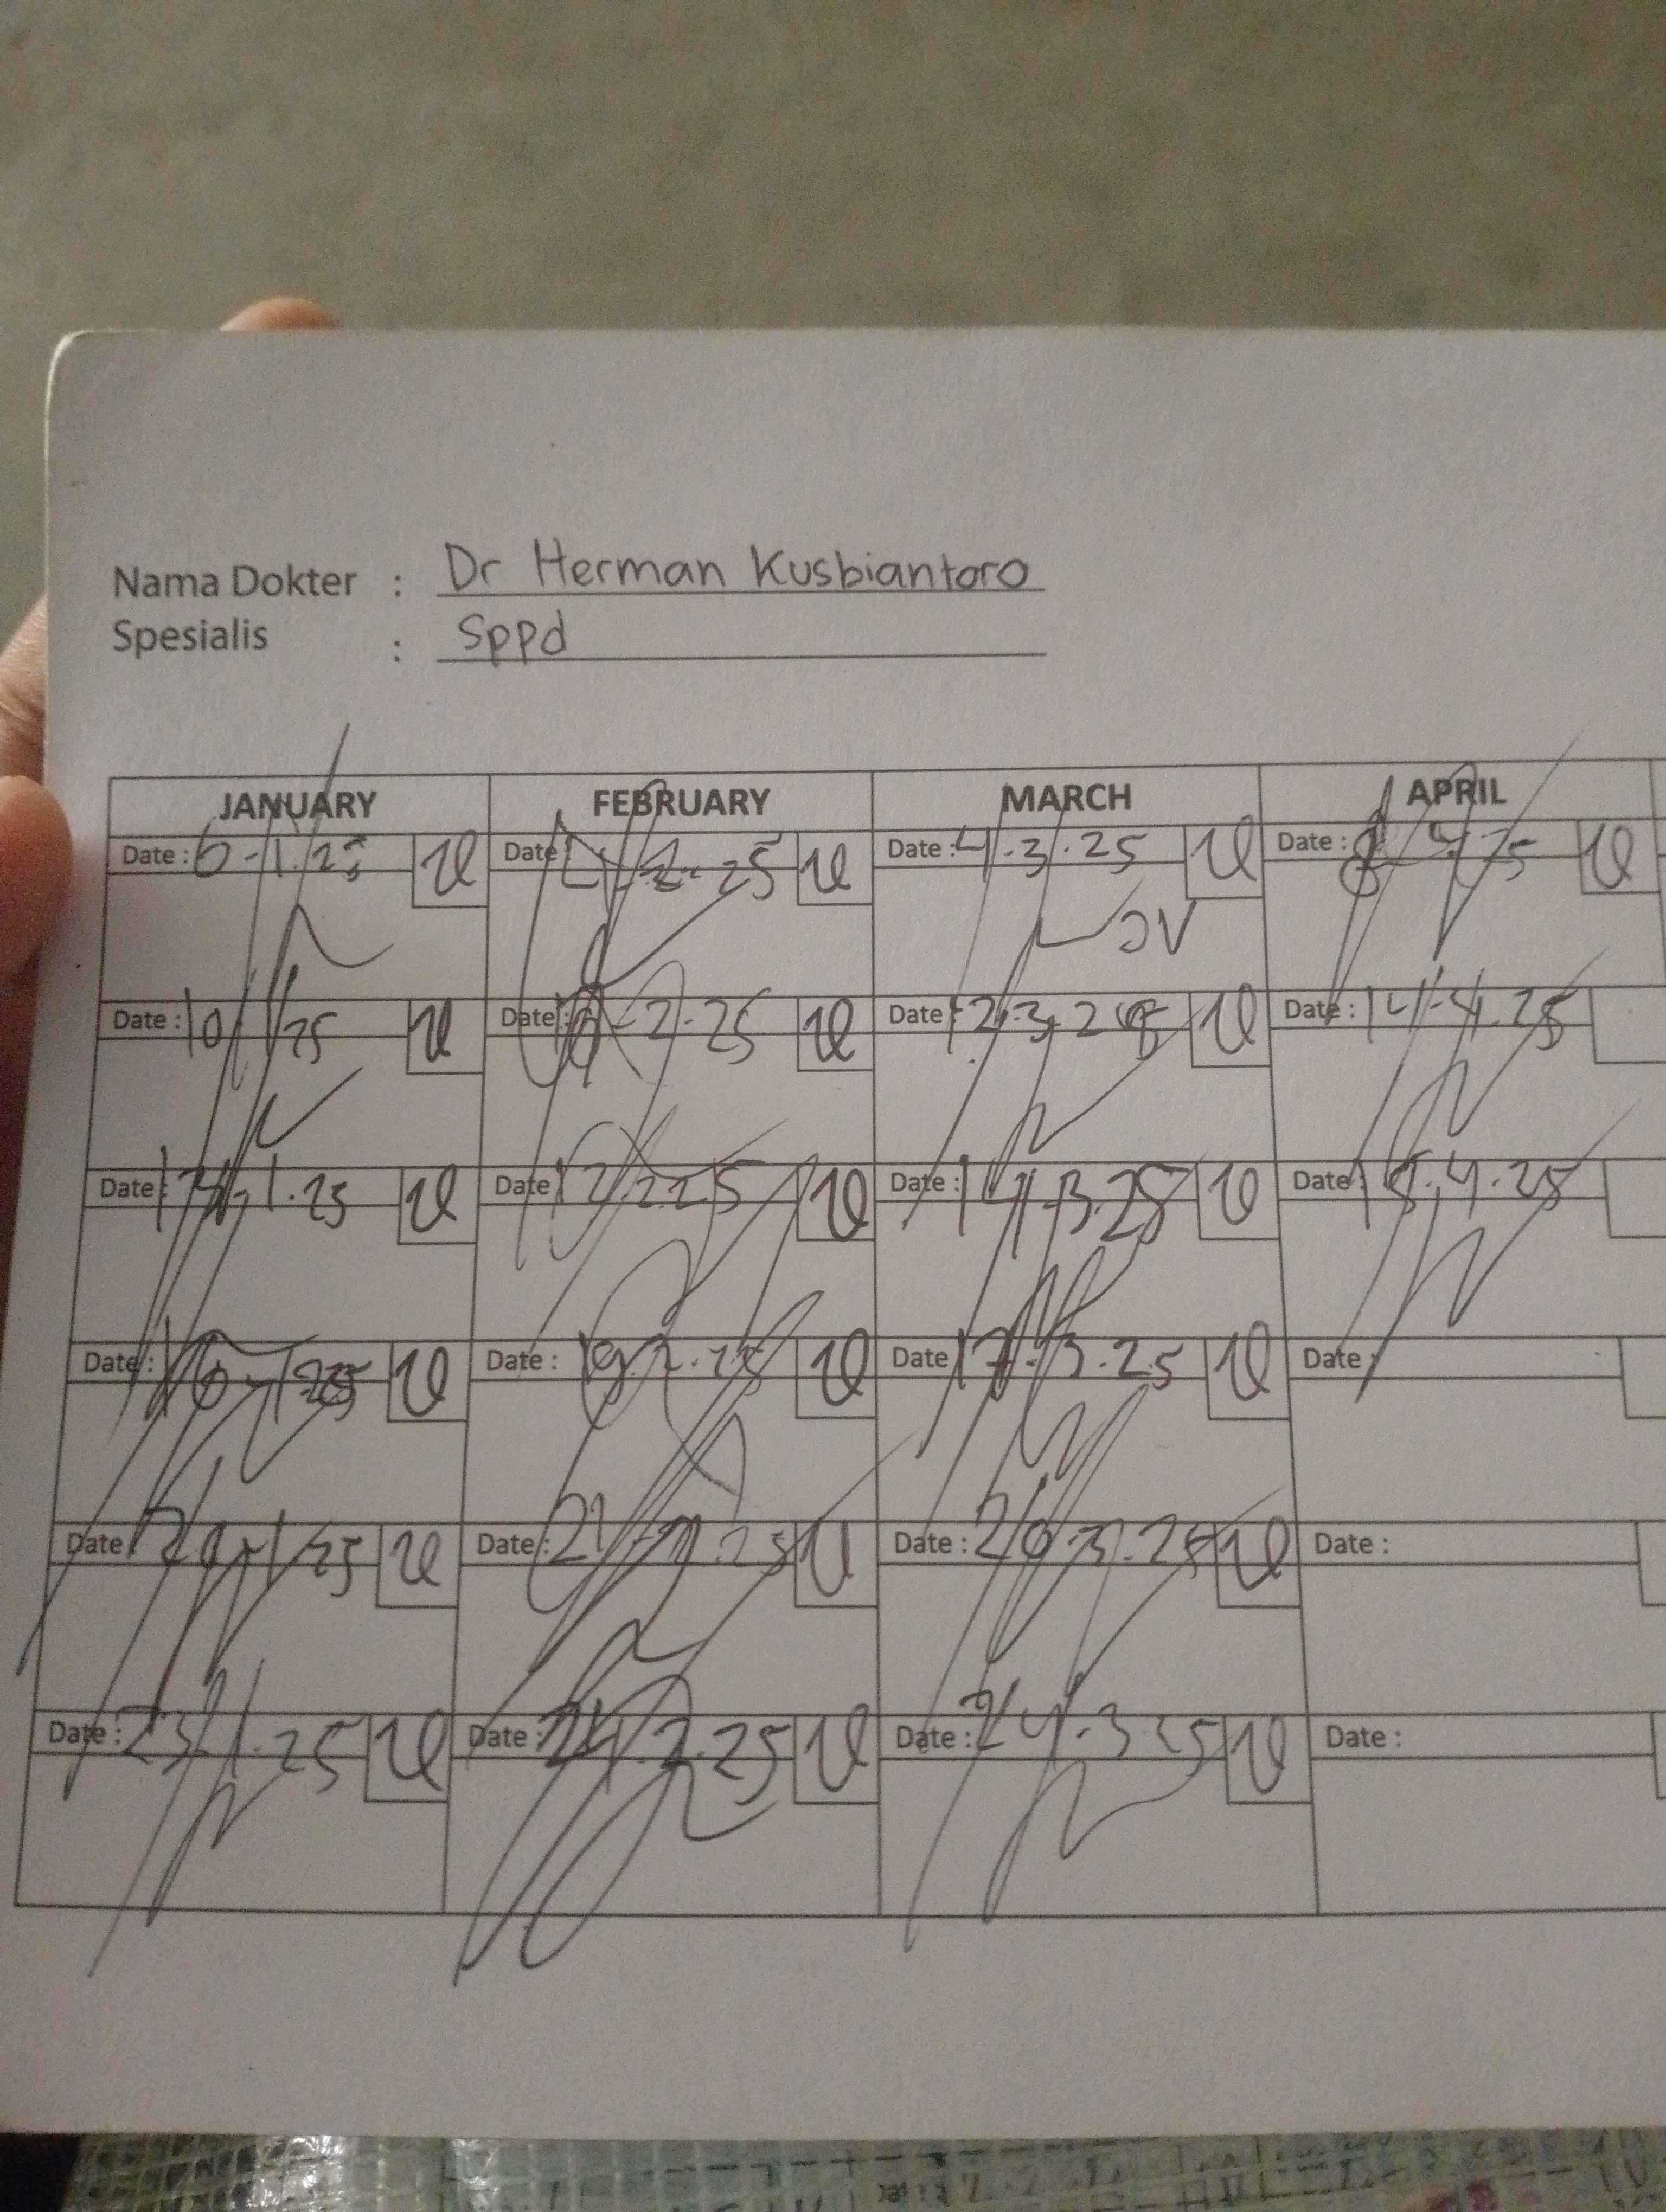 Nama Dokter : Dr Herman Kusbiantoro
Spesialis : Sppd
JANUARY FEBRUARY MARCH APRIL
Date : 6-1.25 Date : 4-2-25 Date : 4.3.25 Date : 8 4 25
JV
Date : 10 1 25 Date : 10-2-25 Date : 12.3.25 Date : 14-4.25
Date : 13.1.25 Date : 12.2.25 Date : 14.3.25 Date : 15.4.25
Date : 16-1.25 Date : 19.2.25 Date : 17-3.25 Date :
Date : 20-1.25 Date : 21-2.25 Date : 20-3.25 Date :
Date : 23.1.25 Date : 24.2.25 Date : 24.3.25 Date :